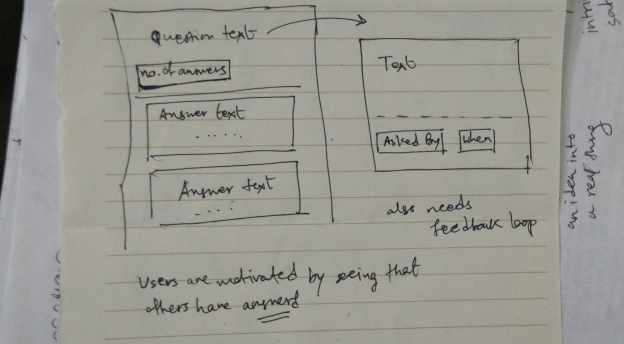 Question text
no. of answers
Answer text
.....
Answer text
....
Text
Asked By
when
also needs
feedback loop
Users are motivated by seeing that
others have answerd
an idea into
a real thing